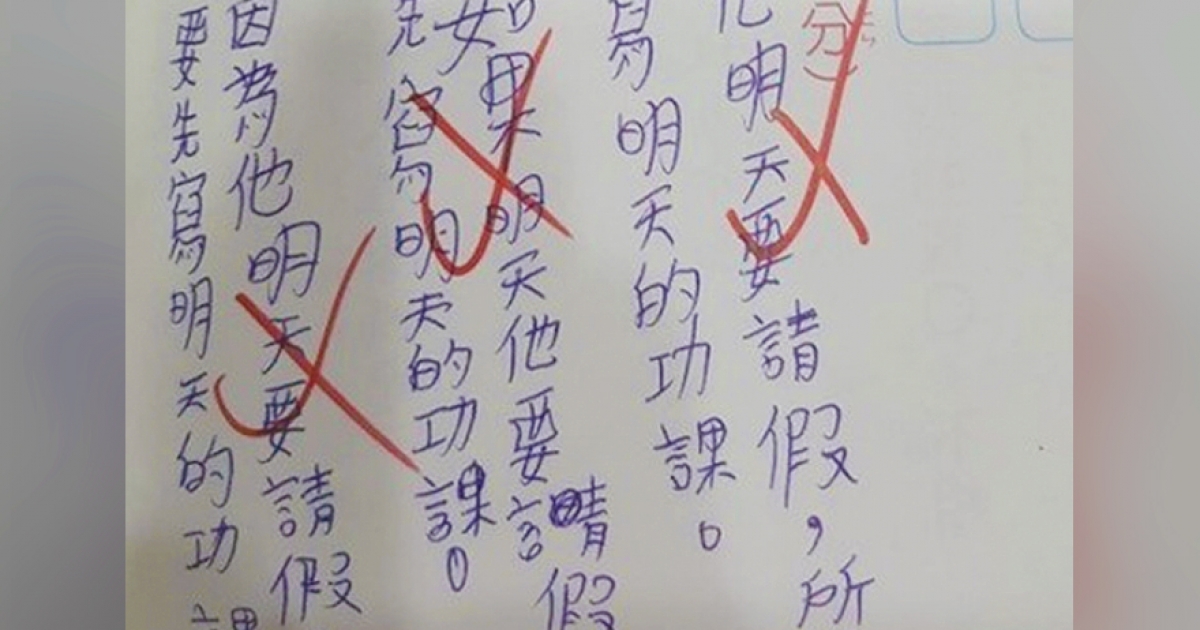 分）
他明天要請假，所
寫明天的功課。
如果明天他要請假
先寫明天的功課。
因為他明天要請假
要先寫明天的功課